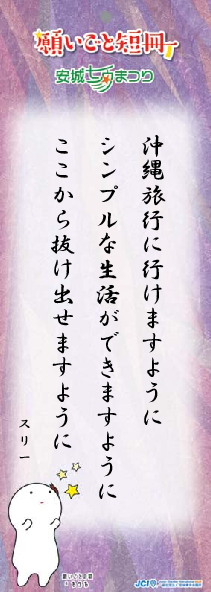 願いごと短冊
安城七夕まつり
沖縄旅行に行けますように
シンプルな生活ができますように
ここから抜け出せますように
スリー
願いごと短冊
JCI